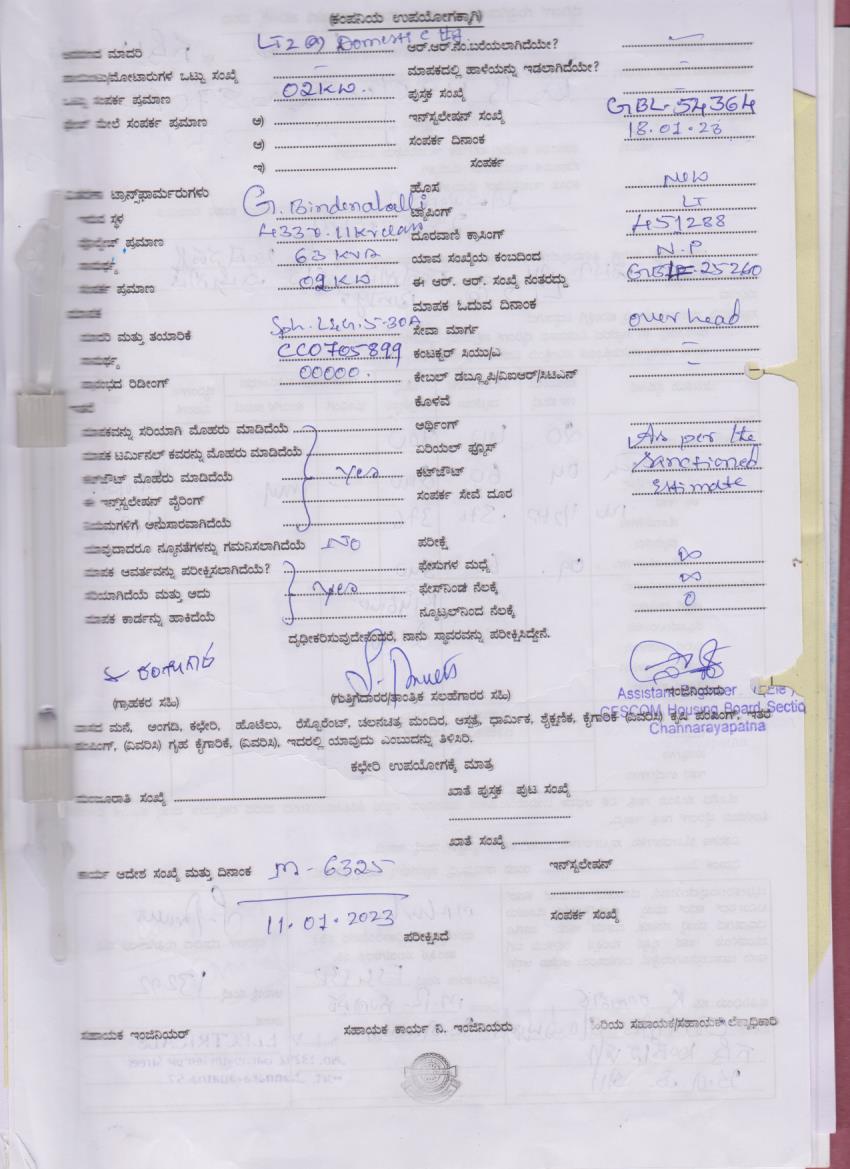 (ಕಂಪನಿಯ ಉಪಯೋಗಕ್ಕಾಗಿ)
ಮಾದರಿ LT2 (a) Domestic ಆರ್.ಆರ್.ನಂ.ಬರೆಯಲಾಗಿದೆಯೇ? –
ಮೋಟಾರುಗಳ ಒಟ್ಟು ಸಂಖ್ಯೆ – ಮಾಪಕದಲ್ಲಿ ಹಾಳೆಯನ್ನು ಇಡಲಾಗಿದೆಯೇ? –
ಒಟ್ಟು ಸಂಪರ್ಕ ಪ್ರಮಾಣ 02KW ಪುಸ್ತಕ ಸಂಖ್ಯೆ –
ಮೇಲೆ ಸಂಪರ್ಕ ಪ್ರಮಾಣ ಅ) ಇನ್‌ಸ್ಟಲೇಷನ್ ಸಂಖ್ಯೆ GBL-54364
ಆ) ಸಂಪರ್ಕ ದಿನಾಂಕ 18.01.23
ಇ) ಸಂಪರ್ಕ
ಟ್ರಾನ್ಸ್‌ಫಾರ್ಮರುಗಳು ಹೊಸ New
ಸ್ಥಳ G. Bindenahalli ಟ್ಯಾಪಿಂಗ್ LT
ಪ್ರಮಾಣ 433v-11Kv class ದೂರವಾಣಿ ಕ್ರಾಸಿಂಗ್ 451288
ಸಾಮರ್ಥ್ಯ 63 KVA ಯಾವ ಸಂಖ್ಯೆಯ ಕಂಬದಿಂದ N.P
ಸಂಪರ್ಕ ಪ್ರಮಾಣ 02KW ಈ ಆರ್. ಆರ್. ಸಂಖ್ಯೆ ನಂತರದ್ದು 25260
ಮಾಪಕ ಮಾಪಕ ಓದುವ ದಿನಾಂಕ
ಮಾದರಿ ಮತ್ತು ತಯಾರಿಕೆ 5-30A ಸೇವಾ ಮಾರ್ಗ over head
ಸಾಮರ್ಥ್ಯ CC0705899 ಕಂಟಕ್ಟರ್ ಸಿಯು/ಎ –
ಪ್ರಾರಂಭದ ರಿಡೀಂಗ್ 00000. ಕೇಬಲ್ ಡಬ್ಲ್ಯೂಪಿ/ವಿಐಆರ್/ಸಿಟಿಎನ್ –
ಕೊಳವೆ
ಮಾಪಕವನ್ನು ಸರಿಯಾಗಿ ಮೊಹರು ಮಾಡಿದೆಯೆ ಅರ್ಥಿಂಗ್
ಮಾಪಕ ಟರ್ಮಿನಲ್ ಕವರನ್ನು ಮೊಹರು ಮಾಡಿದೆಯೇ ಏರಿಯಲ್ ಫ್ಯೂಸ್ As per the
ಕಟ್‌ಔಟ್ ಮೊಹರು ಮಾಡಿದೆಯೆ Yes ಕಟ್‌ಔಟ್ Sanctioned
ಈ ಇನ್ಸ್‌ಟಲೇಷನ್ ವೈರಿಂಗ್ ಸಂಪರ್ಕ ಸೇವೆ ದೂರ Estimate
ನಿಯಮಗಳಿಗೆ ಅನುಸಾರವಾಗಿದೆಯೆ
ಯಾವುದಾದರೂ ನ್ಯೂನತೆಗಳನ್ನು ಗಮನಿಸಲಾಗಿದೆಯೆ NO ಪರೀಕ್ಷೆ
ಮಾಪಕ ಆವರ್ತವನ್ನು ಪರೀಕ್ಷಿಸಲಾಗಿದೆಯೆ? ಫೇಸುಗಳ ಮಧ್ಯೆ ∞
ಸರಿಯಾಗಿದೆಯೆ ಮತ್ತು ಅದು Yes ಫೇಸ್‌ನಿಂಡ ನೆಲಕ್ಕೆ ∞
ಮಾಪಕ ಕಾರ್ಡನ್ನು ಹಾಕಿದೆಯೆ ನ್ಯೂಟ್ರಲ್‌ನಿಂದ ನೆಲಕ್ಕೆ 0
ದೃಢೀಕರಿಸುವುದೇನಂದರೆ, ನಾನು ಸ್ಥಾವರವನ್ನು ಪರೀಕ್ಷಿಸಿದ್ದೇನೆ.
(ಗ್ರಾಹಕರ ಸಹಿ) (ಗುತ್ತಿಗೆದಾರರ/ತಾಂತ್ರಿಕ ಸಲಹೆಗಾರರ ಸಹಿ) ಇಂಜಿನಿಯರು
Assistant Engineer (Ele)
CESCOM Housing Board Sectio
Channarayapatna
ವಾಸದ ಮನೆ, ಅಂಗಡಿ, ಕಛೇರಿ, ಹೊಟೆಲು, ರೆಸ್ಟೋರೆಂಟ್, ಚಲನಚಿತ್ರ ಮಂದಿರ, ಆಸ್ಪತ್ರೆ, ಧಾರ್ಮಿಕ, ಶೈಕ್ಷಣಿಕ, ಕೈಗಾರಿಕೆ (ವಿವರಿಸಿ) ಕೃಷಿ ಪಂಪಿಂಗ್, ಇತರೆ
ಪಂಪಿಂಗ್, (ವಿವರಿಸಿ) ಗೃಹ ಕೈಗಾರಿಕೆ, (ವಿವರಿಸಿ), ಇದರಲ್ಲಿ ಯಾವುದು ಎಂಬುದನ್ನು ತಿಳಿಸಿರಿ.
ಕಛೇರಿ ಉಪಯೋಗಕ್ಕೆ ಮಾತ್ರ
ಮಂಜೂರಾತಿ ಸಂಖ್ಯೆ ಖಾತೆ ಪುಸ್ತಕ ಪುಟ ಸಂಖ್ಯೆ
ಖಾತೆ ಸಂಖ್ಯೆ
ಕಾರ್ಯ ಆದೇಶ ಸಂಖ್ಯೆ ಮತ್ತು ದಿನಾಂಕ M-6325 ಇನ್‌ಸ್ಟಲೇಷನ್
11.01.2023 ಸಂಪರ್ಕ ಸಂಖ್ಯೆ
ಪರೀಕ್ಷಿಸಿದೆ
ಸಹಾಯಕ ಇಂಜಿನಿಯರ್ ಸಹಾಯಕ ಕಾರ್ಯ ನಿ. ಇಂಜಿನಿಯರು ಹಿರಿಯ ಸಹಾಯಕ/ಸಹಾಯಕ ಲೆಕ್ಕಾಧಿಕಾರಿ